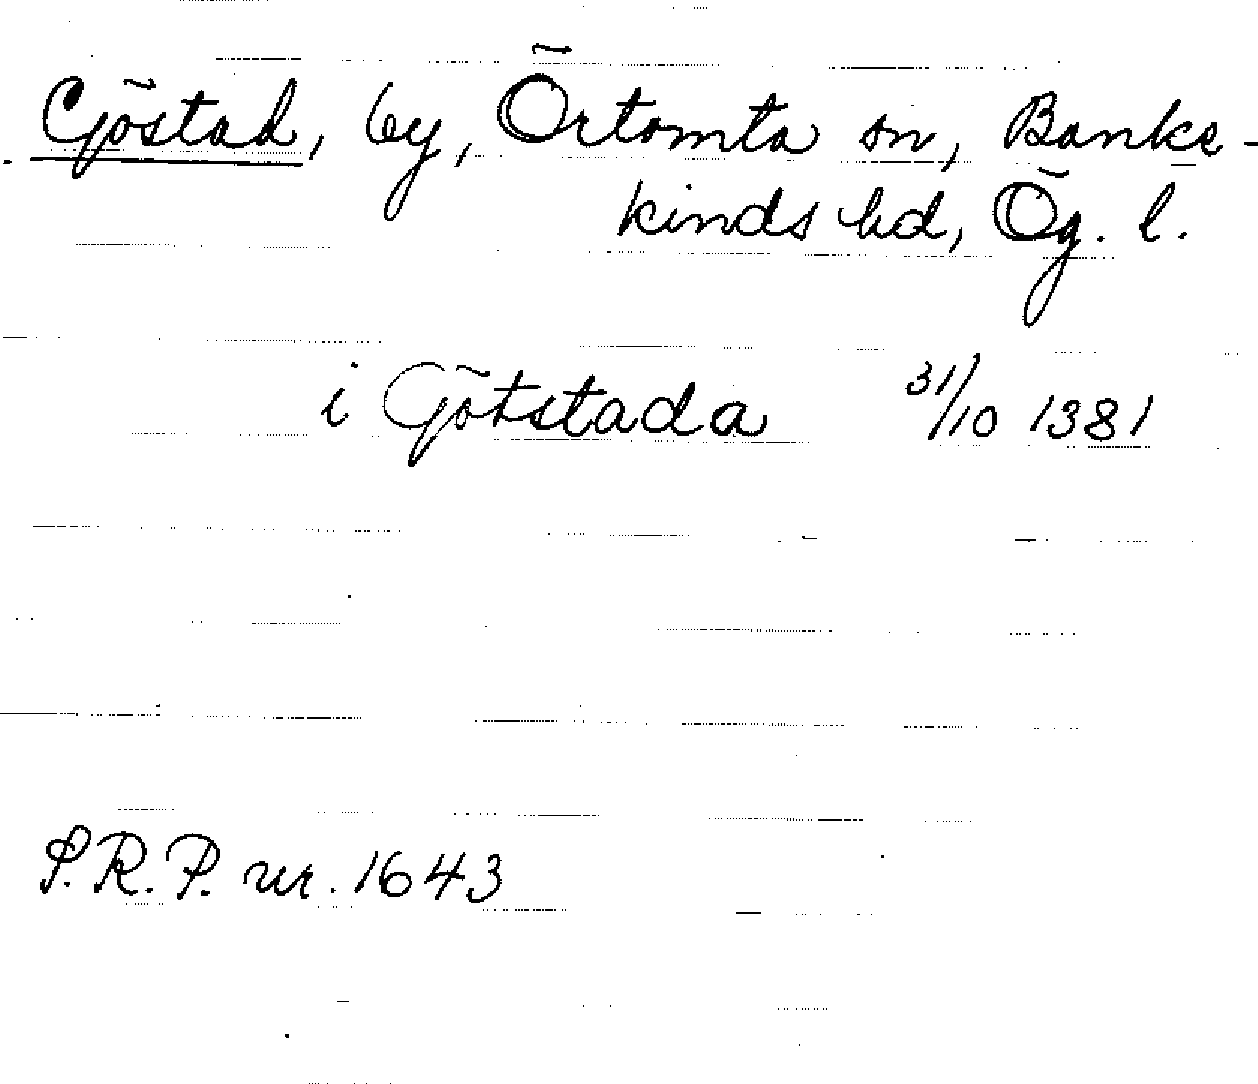 Göstad, by, Örtomta sn, Banke-
kinds hd, Ög. l.
i Götstada 31/10 1381
S.R.P. nr. 1643